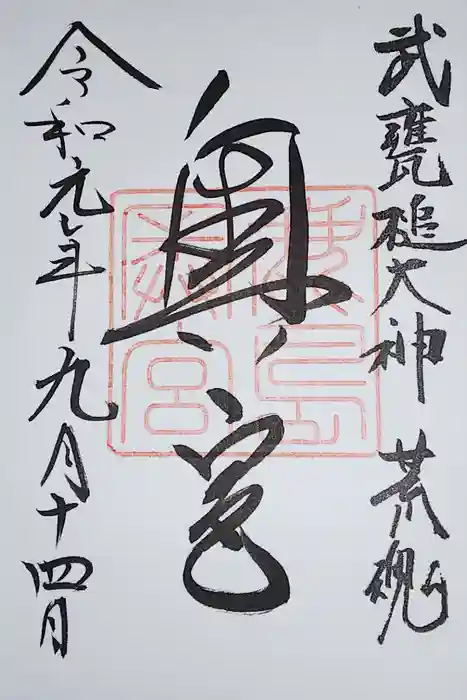 武甕槌大神 荒魂
奥宮
鹿島
奥宮
令和元年九月十四日